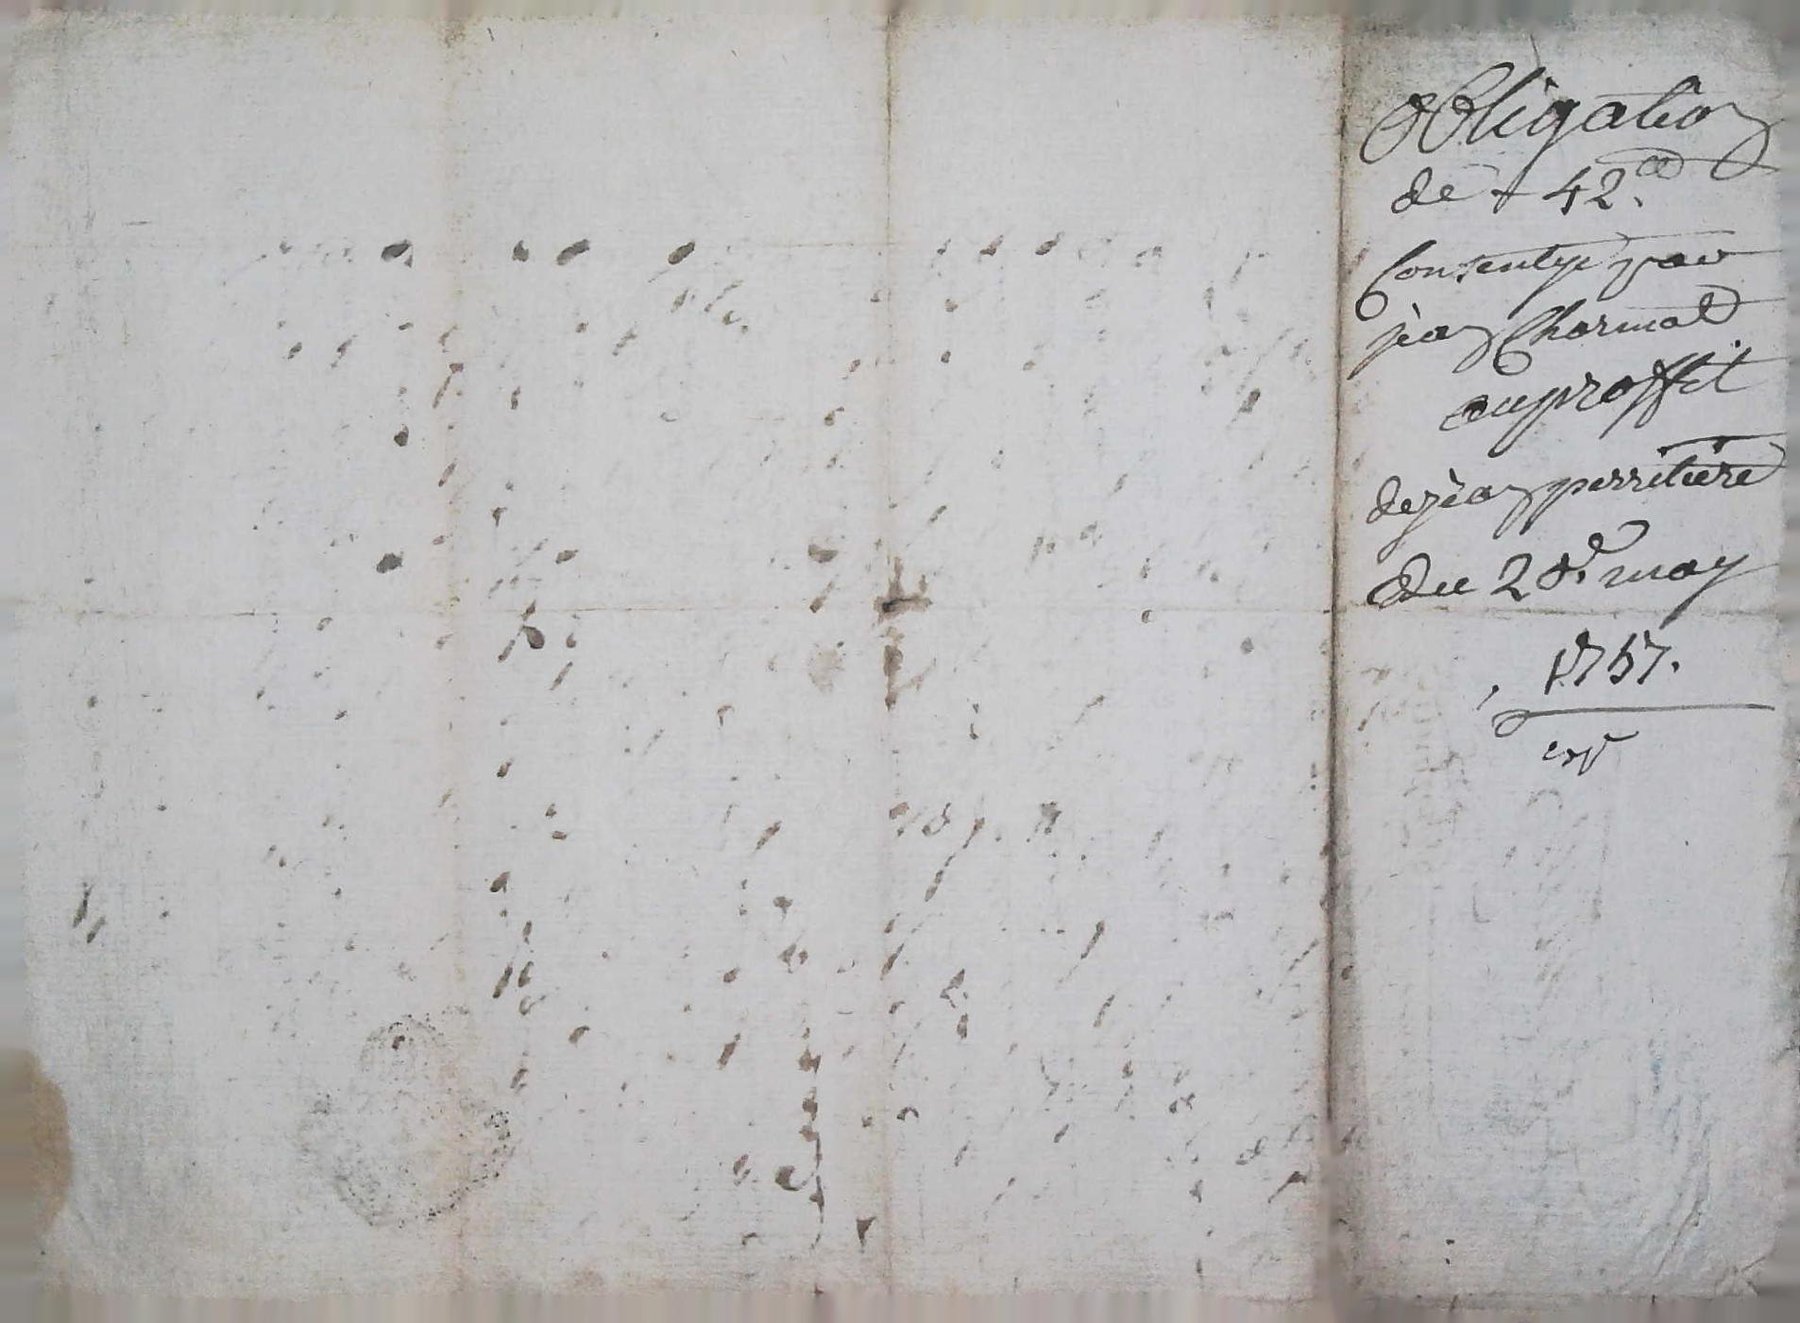 Obligation
de + 42.ᵗᵗ
Consentye par
jean Charmat
au proffit
de jean perritiere
du 28.ᵉ may
1757.